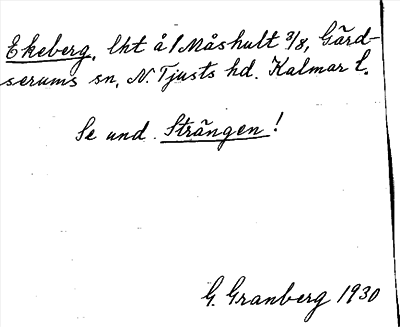 Ekeberg, lht å/Måshult 3/8, Gärd-
serums sn, N. Tjusts hd. Kalmar l.
Se und. Strängen!
G. Granberg 1930